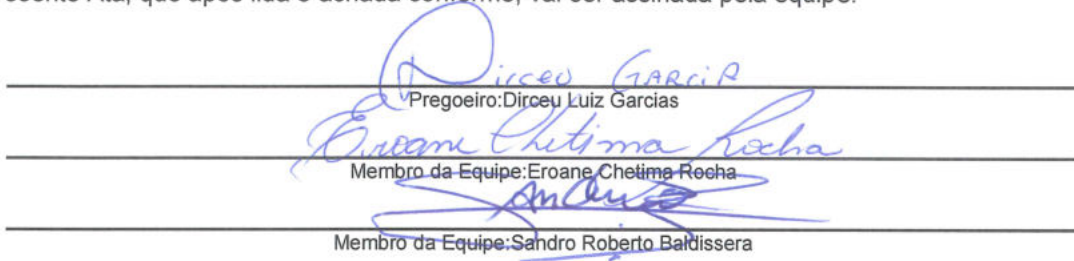 Dirceu Garcia
Pregoeiro:Dirceu Luiz Garcias
Eroane Chetima Rocha
Membro da Equipe:Eroane Chetima Rocha
Membro da Equipe:Sandro Roberto Baldissera